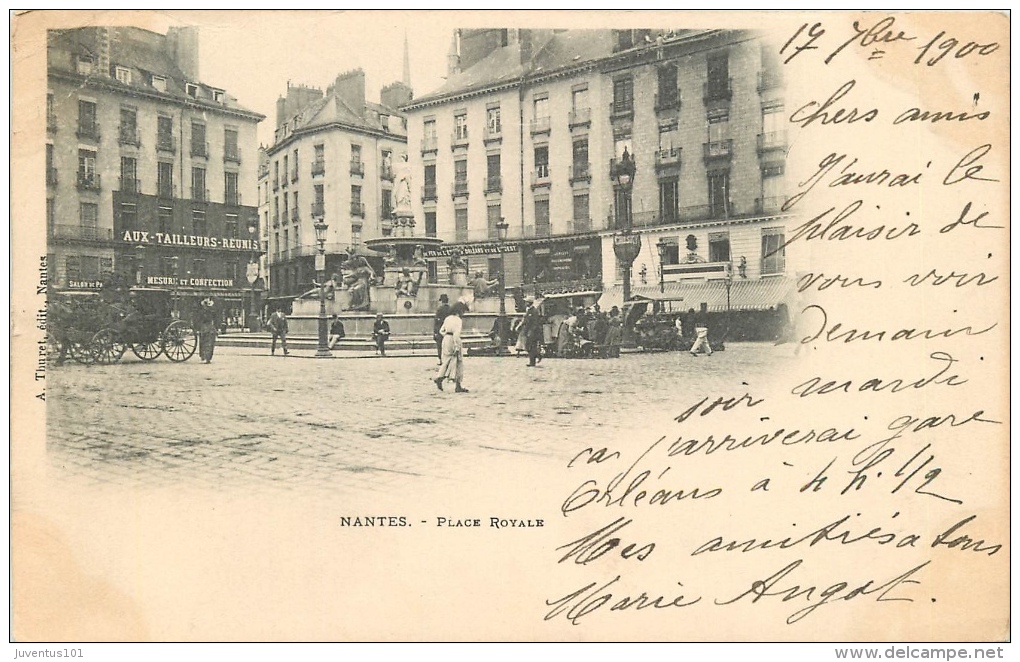 17 7bre 1900
chers amis
J'aurai le
plaisir de
vous voir
demain
soir mardi
car j'arriverai gare
Orléans à 4 h. 1/2
Mes amitiés a tous
Marie Angot.
AUX-TAILLEURS-REUNIS
MESURE ET CONFECTION
SALON DE
A. Thuret, édit., Nantes
NANTES. - PLACE ROYALE
juventus101
www.delcampe.net